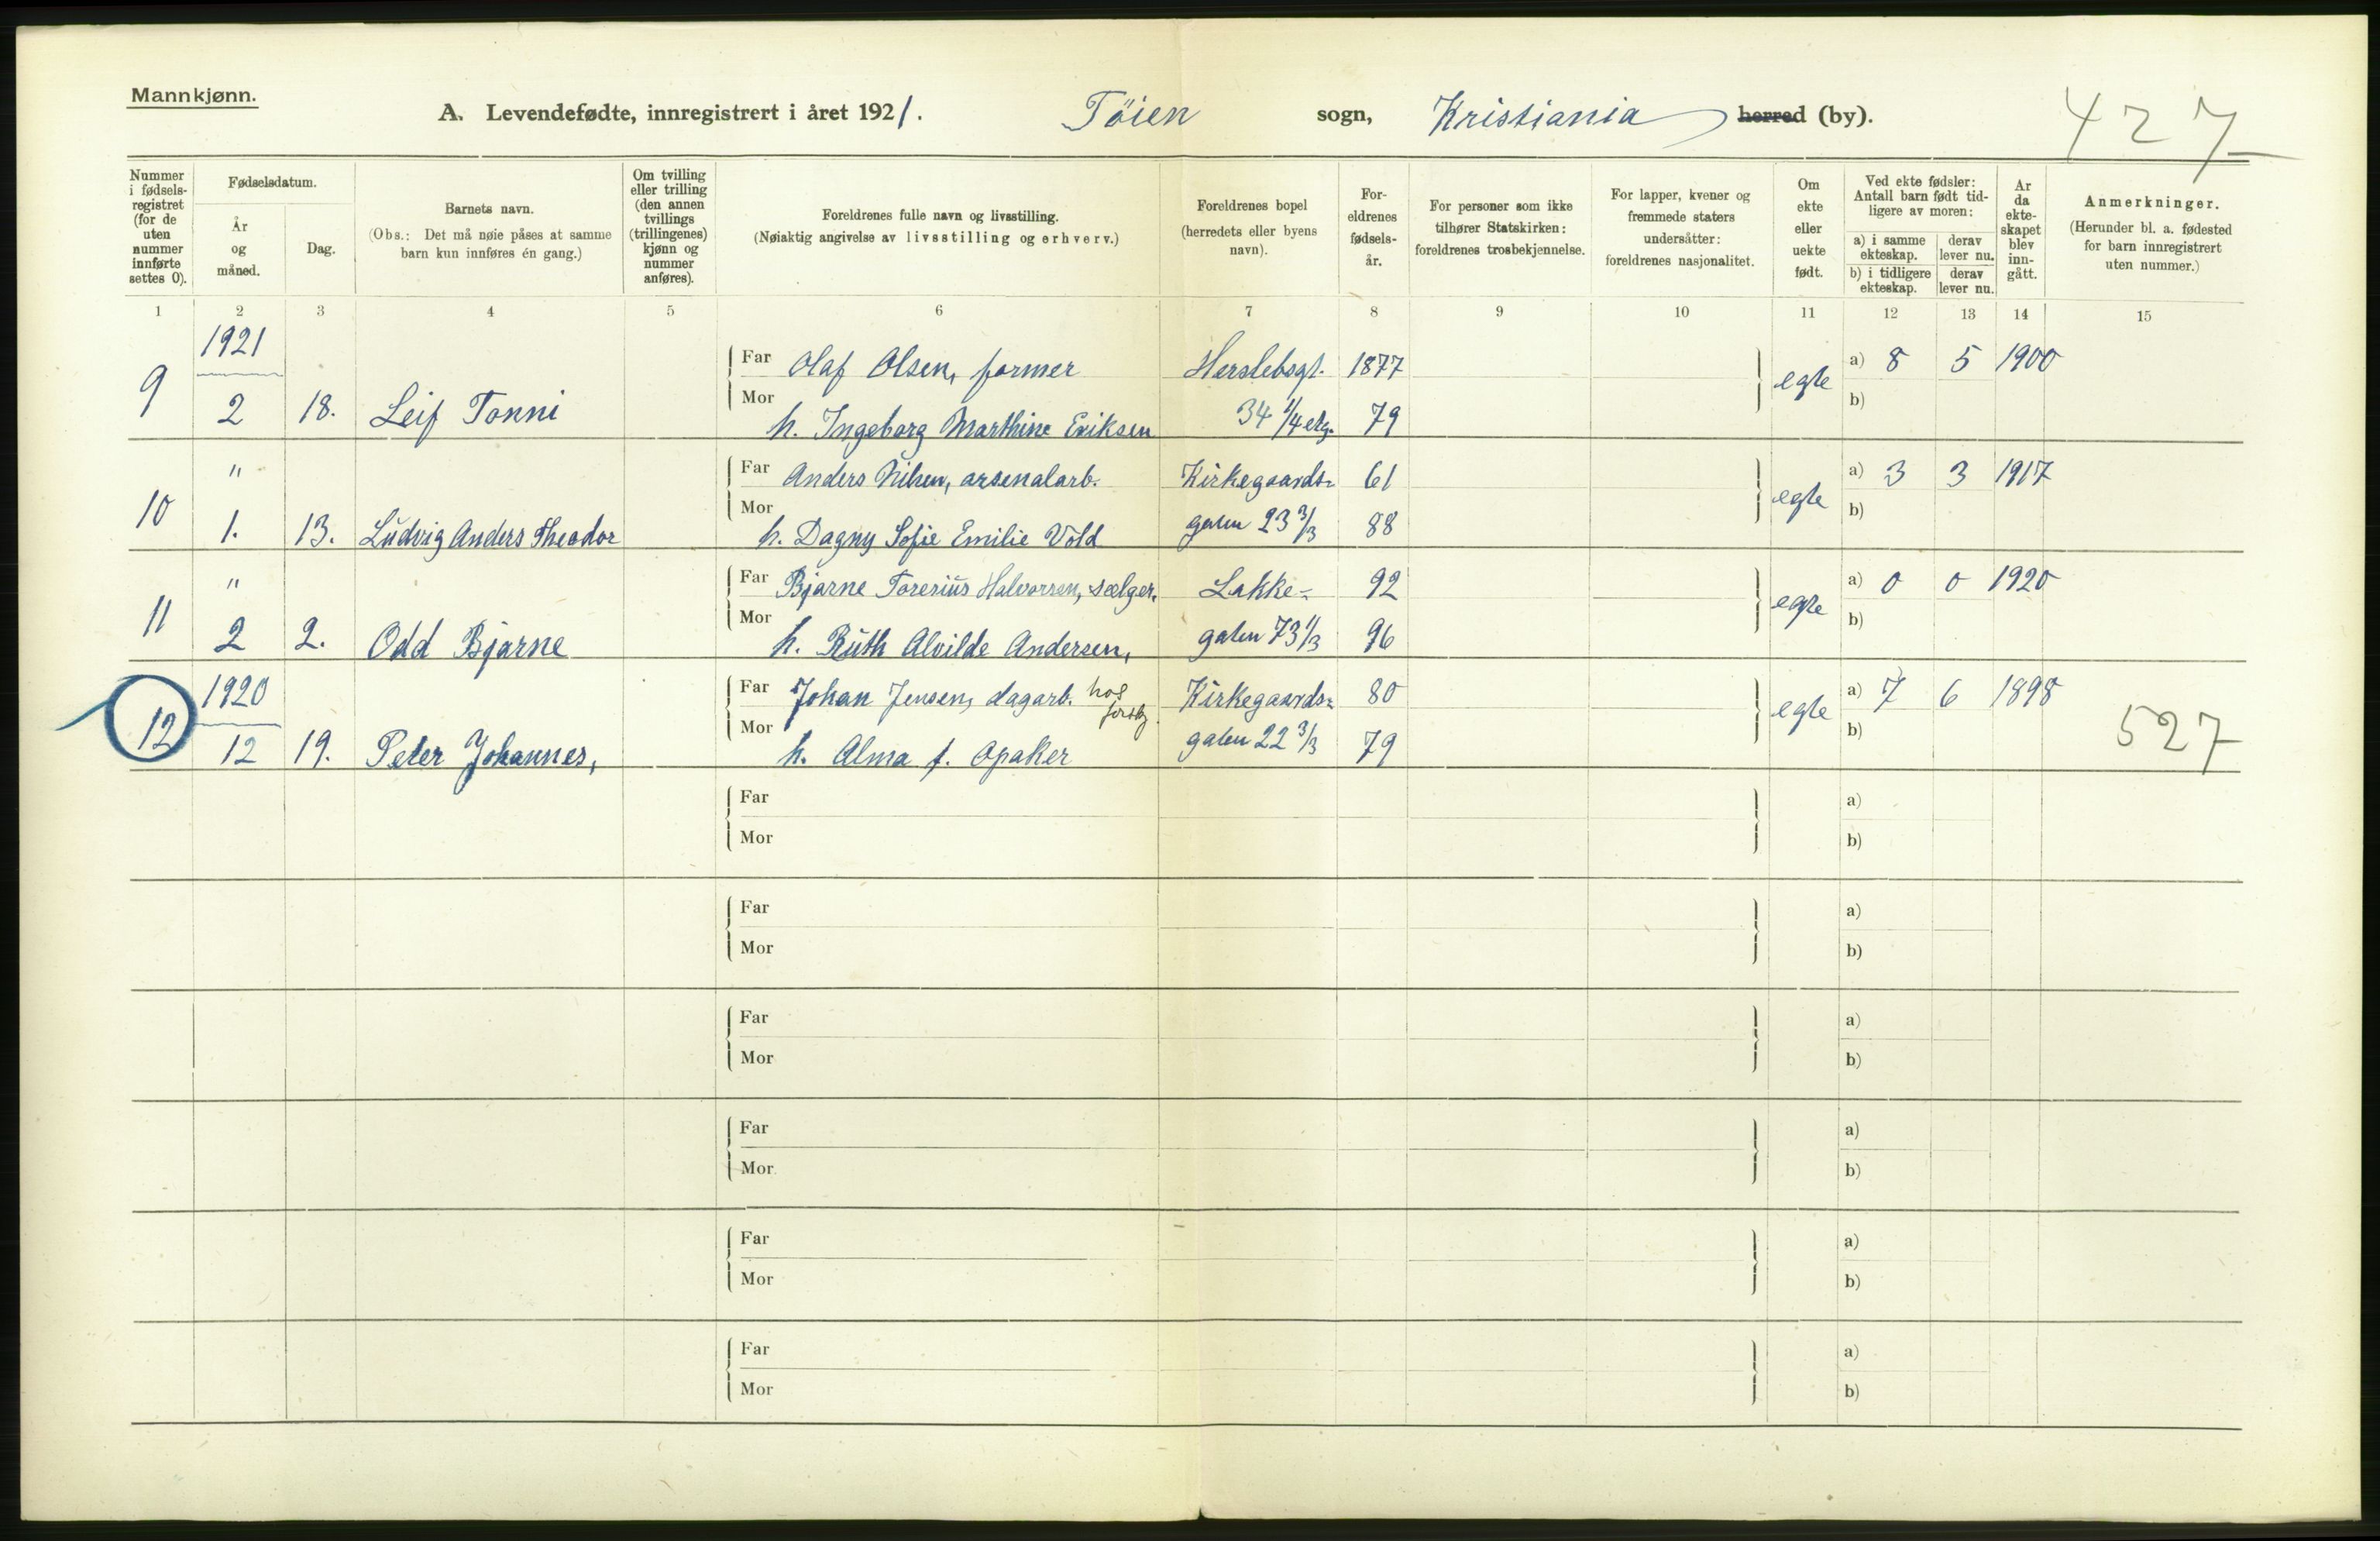 Mannkjønn.
A. Levendefødte, innregistrert i året 1921. Töien sogn, Kristiania herred (by). 427
Nummer i fødsels-registret (for de uten nummer innførte settes 0).
Fødselsdatum.
År og måned.
Dag.
Barnets navn.
(Obs.: Det må nøie påses at samme barn kun innføres én gang.)
Om tvilling eller trilling (den annen tvillings (trillingenes) kjønn og nummer anføres).
Foreldrenes fulle navn og livsstilling.
(Nøiaktig angivelse av livsstilling og erhverv.)
Foreldrenes bopel (herredets eller byens navn).
For-eldrenes fødsels-år.
For personer som ikke tilhører Statskirken: foreldrenes trosbekjennelse.
For lapper, kvener og fremmede staters undersåtter: foreldrenes nasjonalitet.
Om ekte eller uekte født.
Ved ekte fødsler: Antall barn født tid-ligere av moren:
a) i samme ekteskap. derav lever nu.
b) i tidligere ekteskap. derav lever nu.
År da ekte-skapet blev inn-gått.
Anmerkninger.
(Herunder bl. a. fødested for barn innregistrert uten nummer.)
1 2 3 4 5 6 7 8 9 10 11 12 13 14 15
1921 Far Olaf Olsen, former Herslebsgt. 1877 egte a) 8 5 1900
9 2 18. Leif Tonni Mor h. Ingeborg Marthine Eriksen 34 1/4 etg. 79 b)
" Far Anders Nilsen, arsenalarb. Kirkegaards- 61 egte a) 3 3 1917
10 1. 13. Ludvig Anders Theodor Mor h. Dagny Sofie Emilie Vold gaten 23 3/3 88 b)
" Far Bjarne Toresius Halvorsen, sælger. Lakke- 92 egte a) 0 0 1920
11 2 2. Odd Bjarne Mor h. Ruth Alvilde Andersen, gaten 73 1/3 96 b)
1920 Far Johan Jensen, dagarb. hos Kirkegaards- 80 egte a) 7 6 1898
12 12 19. Peter Johannes, Mor h. Alma f. Opaker gaten 22 3/3 79 b) 527
Far a)
Mor b)
Far a)
Mor b)
Far a)
Mor b)
Far a)
Mor b)
Far a)
Mor b)
Far a)
Mor b)